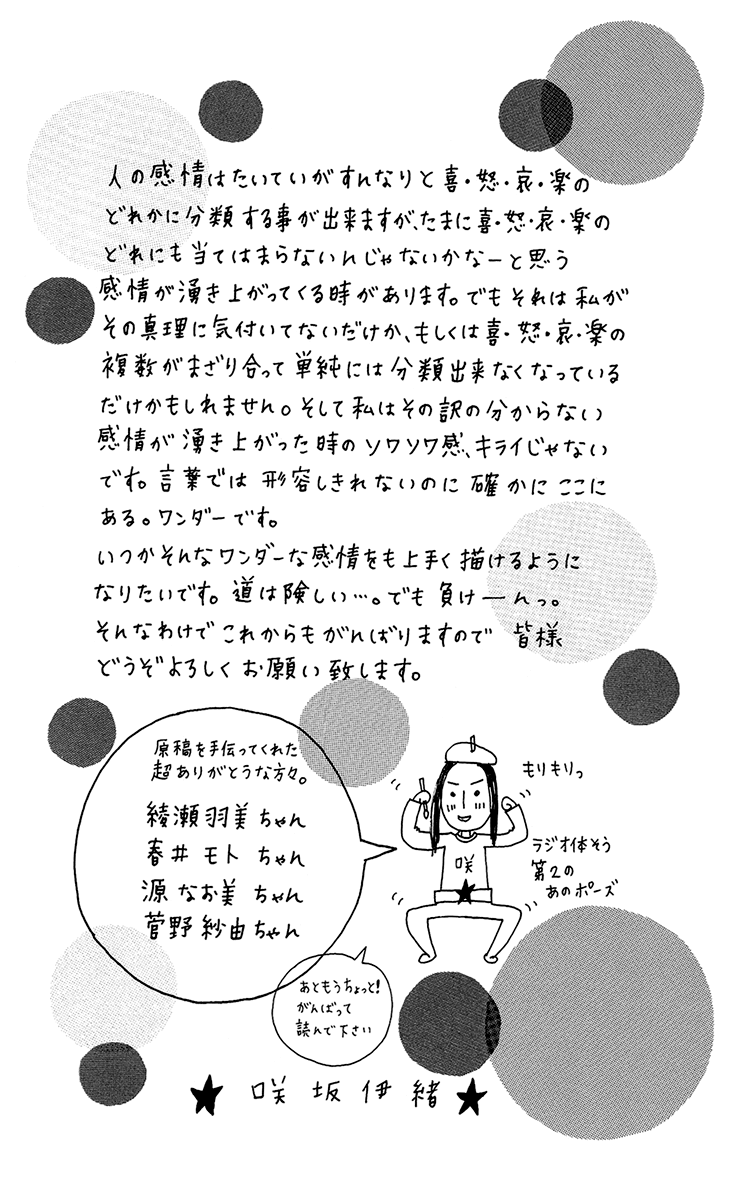 人の感情はたいていがすんなりと喜・怒・哀・楽の
どれかに分類する事が出来ますが、たまに喜・怒・哀・楽の
どれにも当てはまらないんじゃないかなーと思う
感情が湧き上がってくる時があります。でもそれは私が
その真理に気付いてないだけか、もしくは喜・怒・哀・楽の
複数がまざり合って単純には分類出来なくなっている
だけかもしれません。そして私はその訳の分からない
感情が湧き上がった時のソワソワ感、キライじゃない
です。言葉では形容しきれないのに確かにここに
ある。ワンダーです。
いつかそんなワンダーな感情をも上手く描けるように
なりたいです。道は険しい…。でも負けーんっ。
そんなわけでこれからもがんばりますので皆様
どうぞよろしくお願い致します。
原稿を手伝ってくれた
超ありがとうな方々。
綾瀬羽美ちゃん
春井モトちゃん
源なお美ちゃん
菅野紗由ちゃん
もりもりっ
咲
ラジオ体そう
第2の
あのポーズ
あともうちょっと!
がんばって
読んで下さい
★咲坂伊緒★